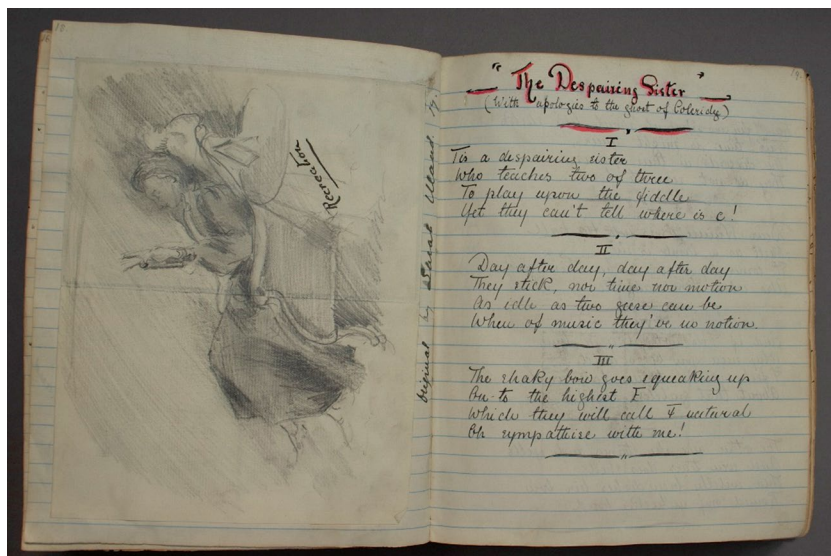 18.
Recreation
Original by Sarah
" The Despairing Sister "
(With apologies to the ghost of Coleridge)
I
Tis a despairing sister
Who teaches two of three
To play upon the fiddle
Yet they can't tell where is c!
II
Day after day, day after day
They stick, nor time nor motion
As idle as two geese can be
When of music they've no notion.
III
The shaky bow goes squeaking up
On to the highest F
Which they will call F natural
Oh sympathise with me!